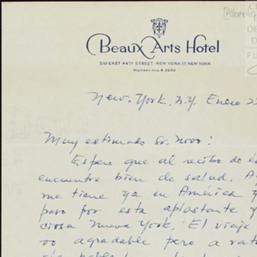 Beaux Arts Hotel
310 EAST 44TH STREET NEW YORK 17, NEW YORK
New-York, N.Y Enero 2
Muy estimado Sr. Novo:
Espero que al recibo de
encuentre bien de salud. A
me tiene ya en América y
paso por esta aplastante y
ciosa Nueva York. El viaje
agradable pero a rat